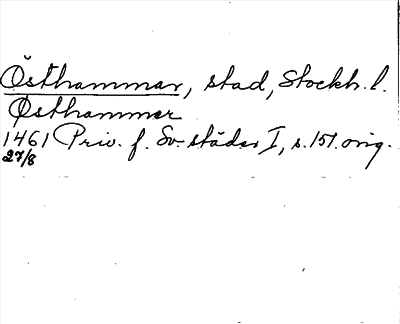 Östhammar, stad, Stockh. l.
Østhammer
1461 Priv. f. Sv. städer I, s. 151. orig.
27/8